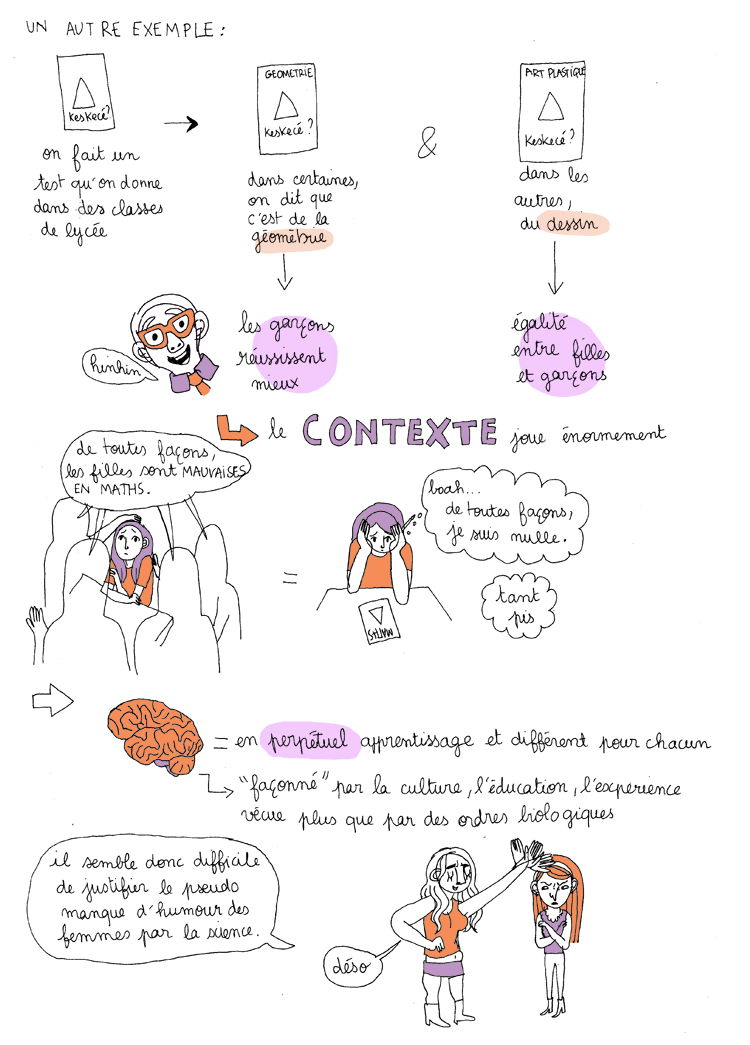 UN AUTRE EXEMPLE :
Keskecé?
on fait un
test qu'on donne
dans des classes
de lycée
GEOMETRIE
Keskecé ?
dans certaines,
on dit que
c'est de la
géométrie
&
ART PLASTIQUE
Keskecé ?
dans les
autres,
du dessin
hinhin
les garçons
réussissent
mieux
égalité
entre filles
et garçons
le CONTEXTE joue énormement
de toutes façons,
les filles sont MAUVAISES
EN MATHS.
=
boah...
de toutes façons,
je suis nulle.
tant
pis
MATHS
= en perpétuel apprentissage et différent pour chacun
"façonné" par la culture, l'éducation, l'expérience
vécue plus que par des ordres biologiques
il semble donc difficile
de justifier le pseudo
manque d'humour des
femmes par la science.
déso